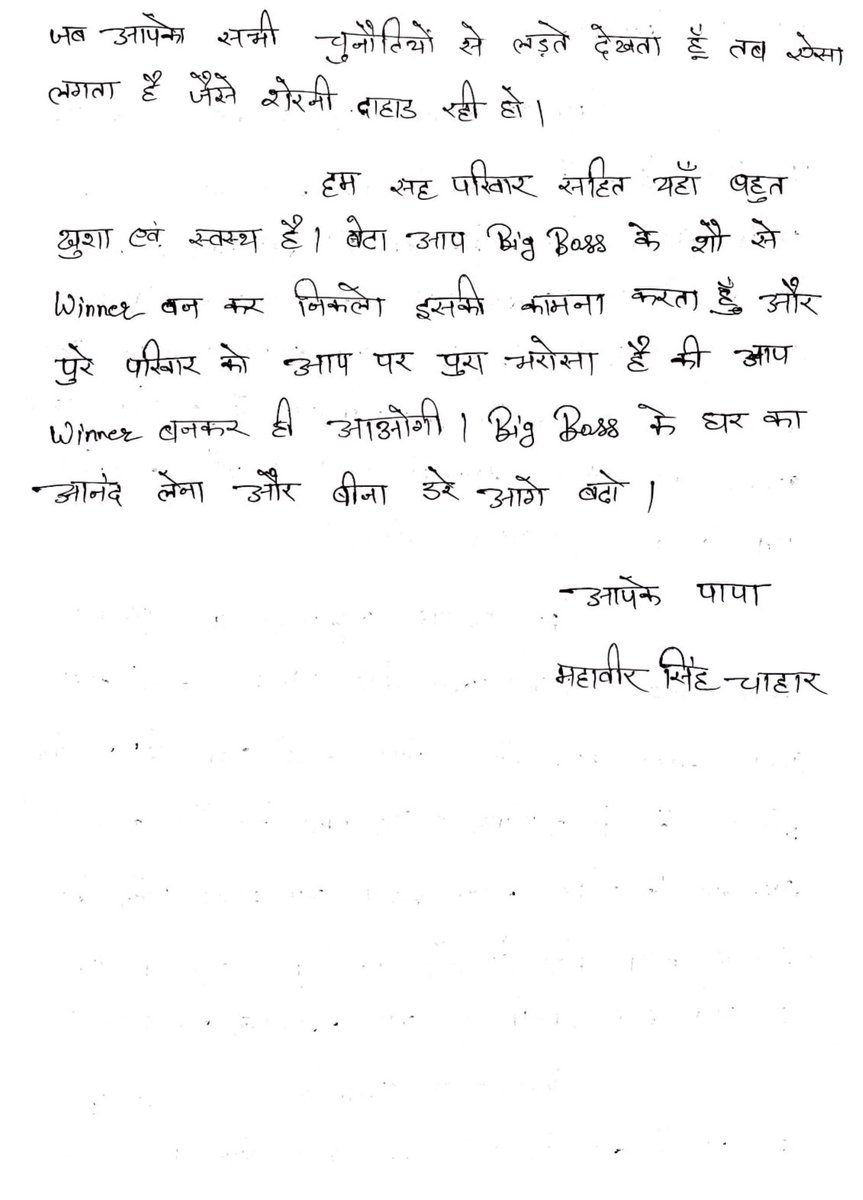 जब आपको सभी चुनौतियों से लड़ते देखता हूँ तब ऐसा
लगता है जैसे शेरनी दाहाड रही हो।
हम सह परिवार सहित यहाँ बहुत
खुश एवं स्वस्थ है। बेटा आप Big Boss के शौ से
Winner बन कर निकलो इसकी कामना करता हुँ और
पुरे परिवार को आप पर पुरा भरोसा है की आप
Winner बनकर ही आओगी। Big Boss के घर का
आनंद लेना और बीना डरे आगे बढो।
आपके पापा
महावीर सिंह चाहार